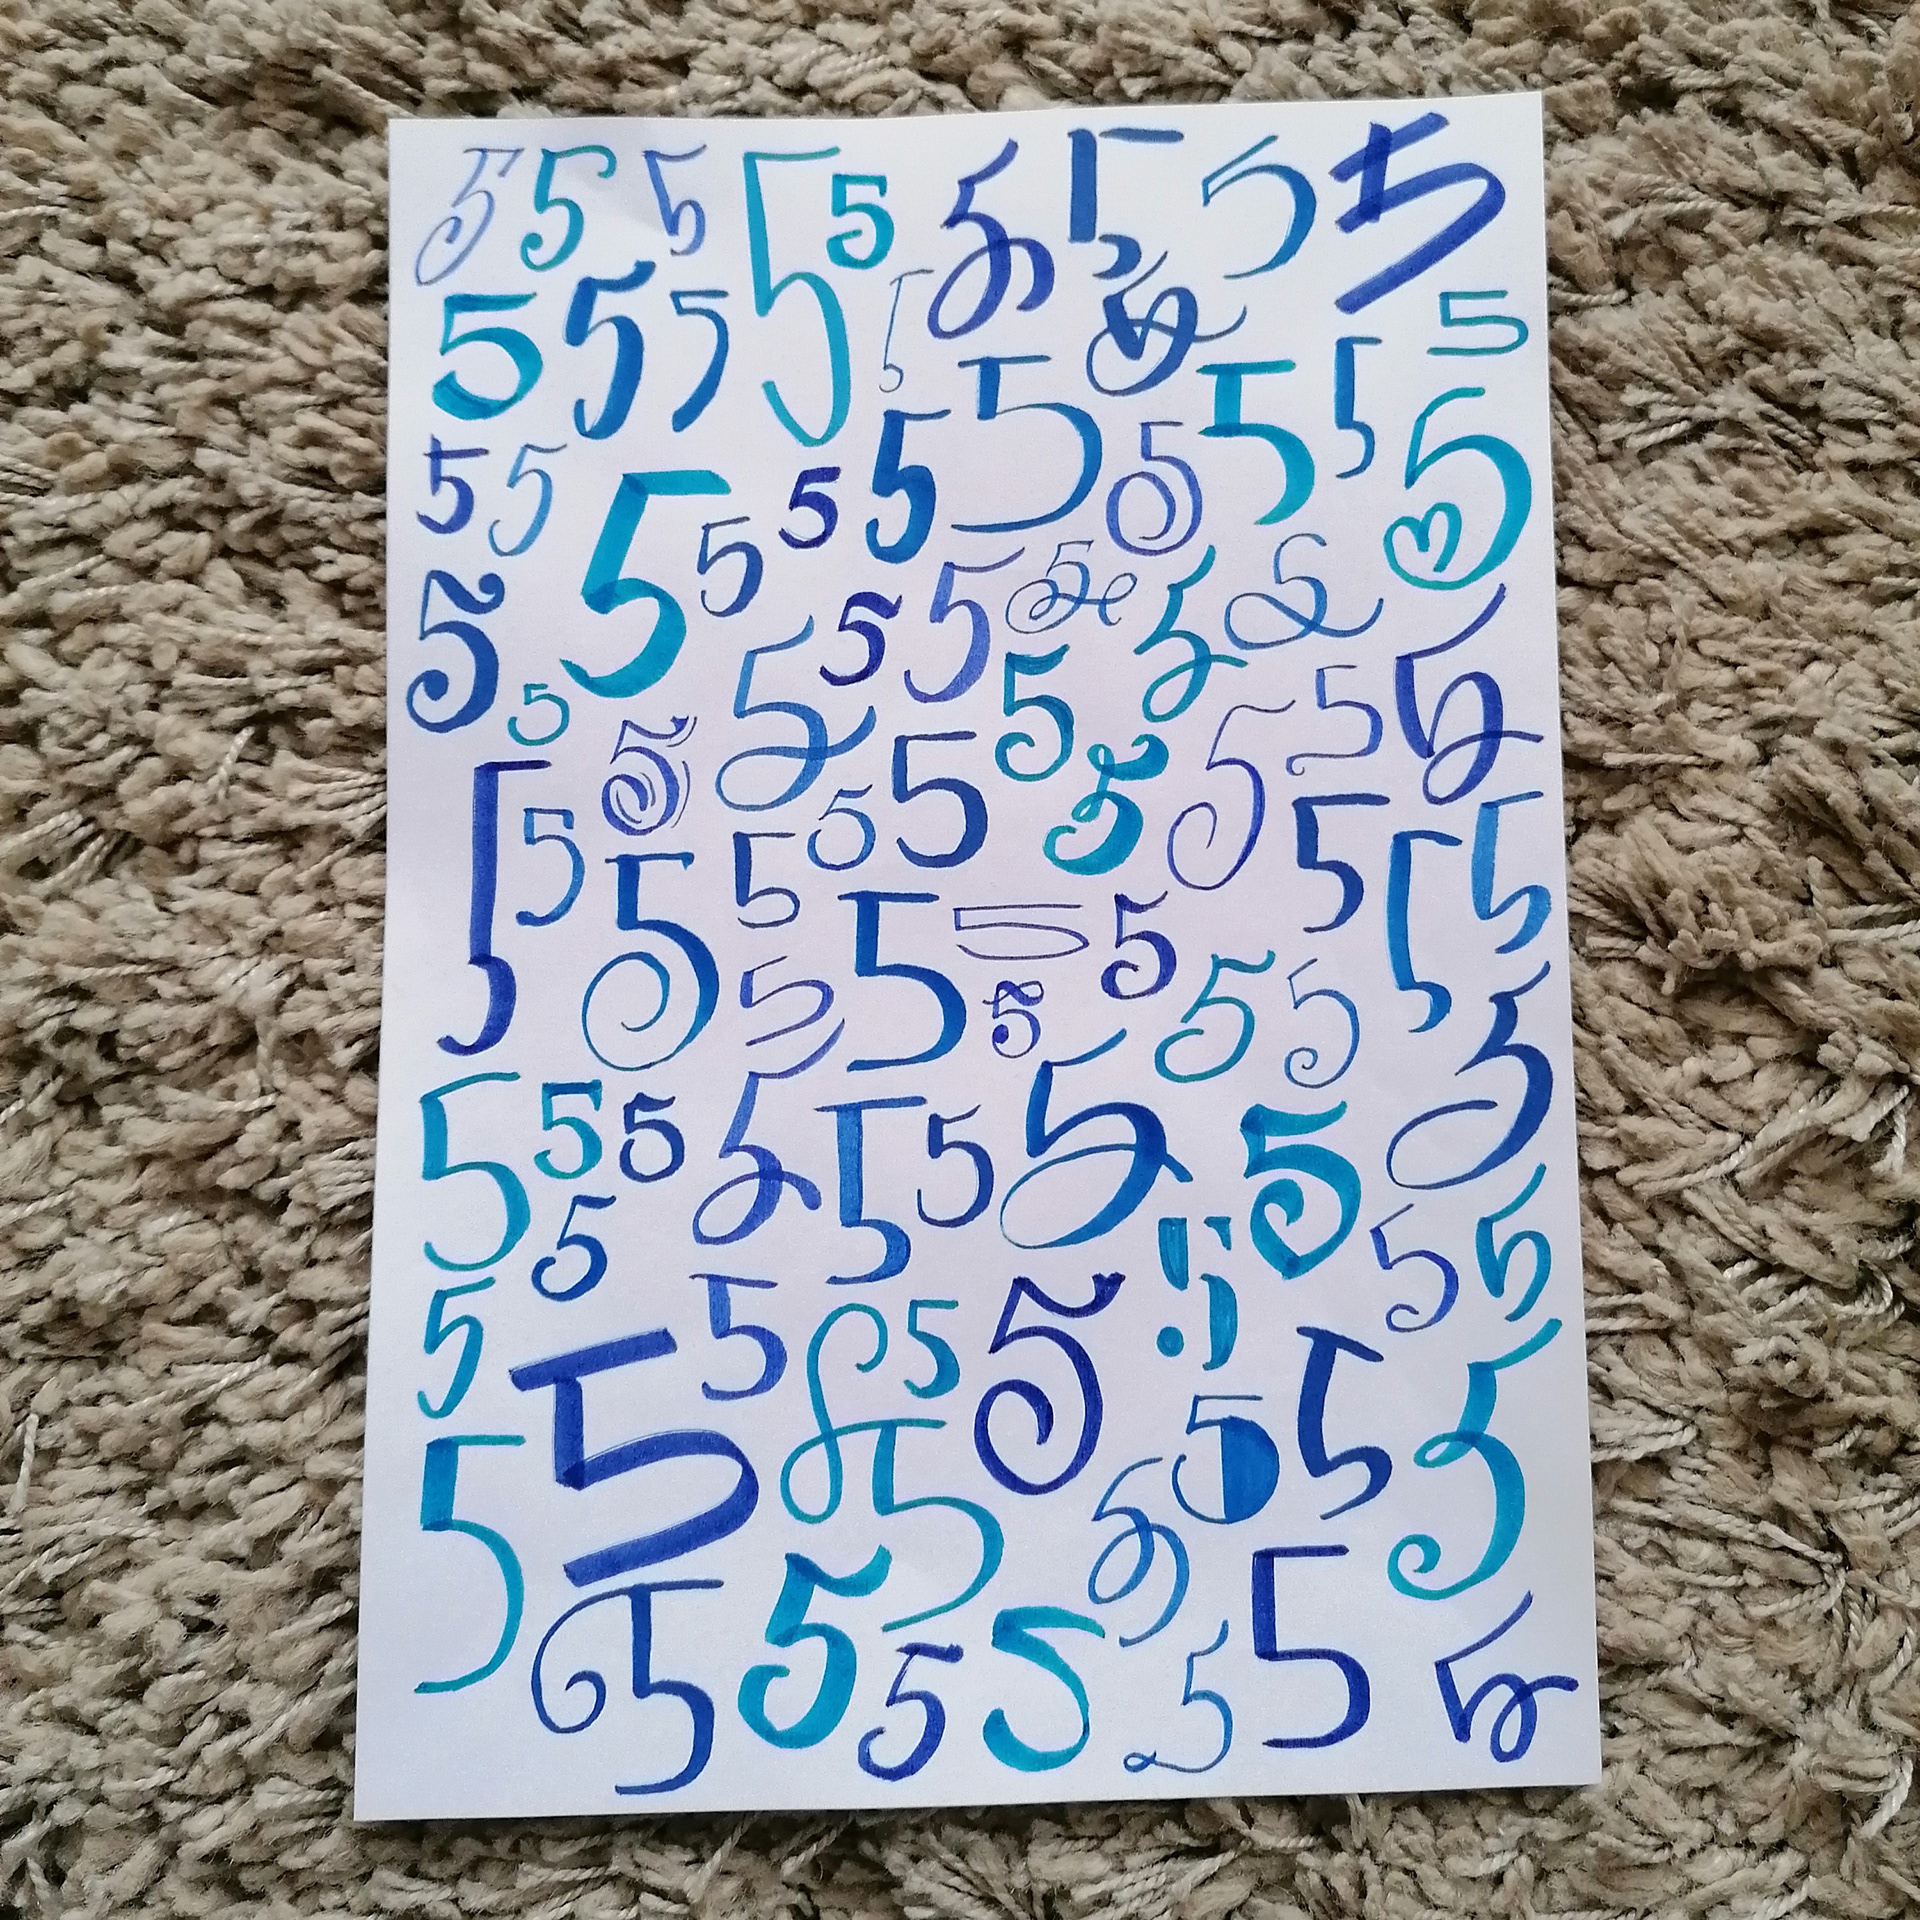 5 5 5 5 5 5 5 5 5
5 5 5 5 5 5
5 5 5 5 5 5 5
5 5 5 5 5
5 5 5 5 5 5
5 5 5 5 5 5
5 5 5 5 5 5 5
5 5 5 5 5 5 5 5
5 5 5 5 5 5 5 5
5 5 5 5 5 5 5 5 5
5 5 5 5 5 5 5
5 5 5 5 5 5 5
5 5 5 5 5 5 5